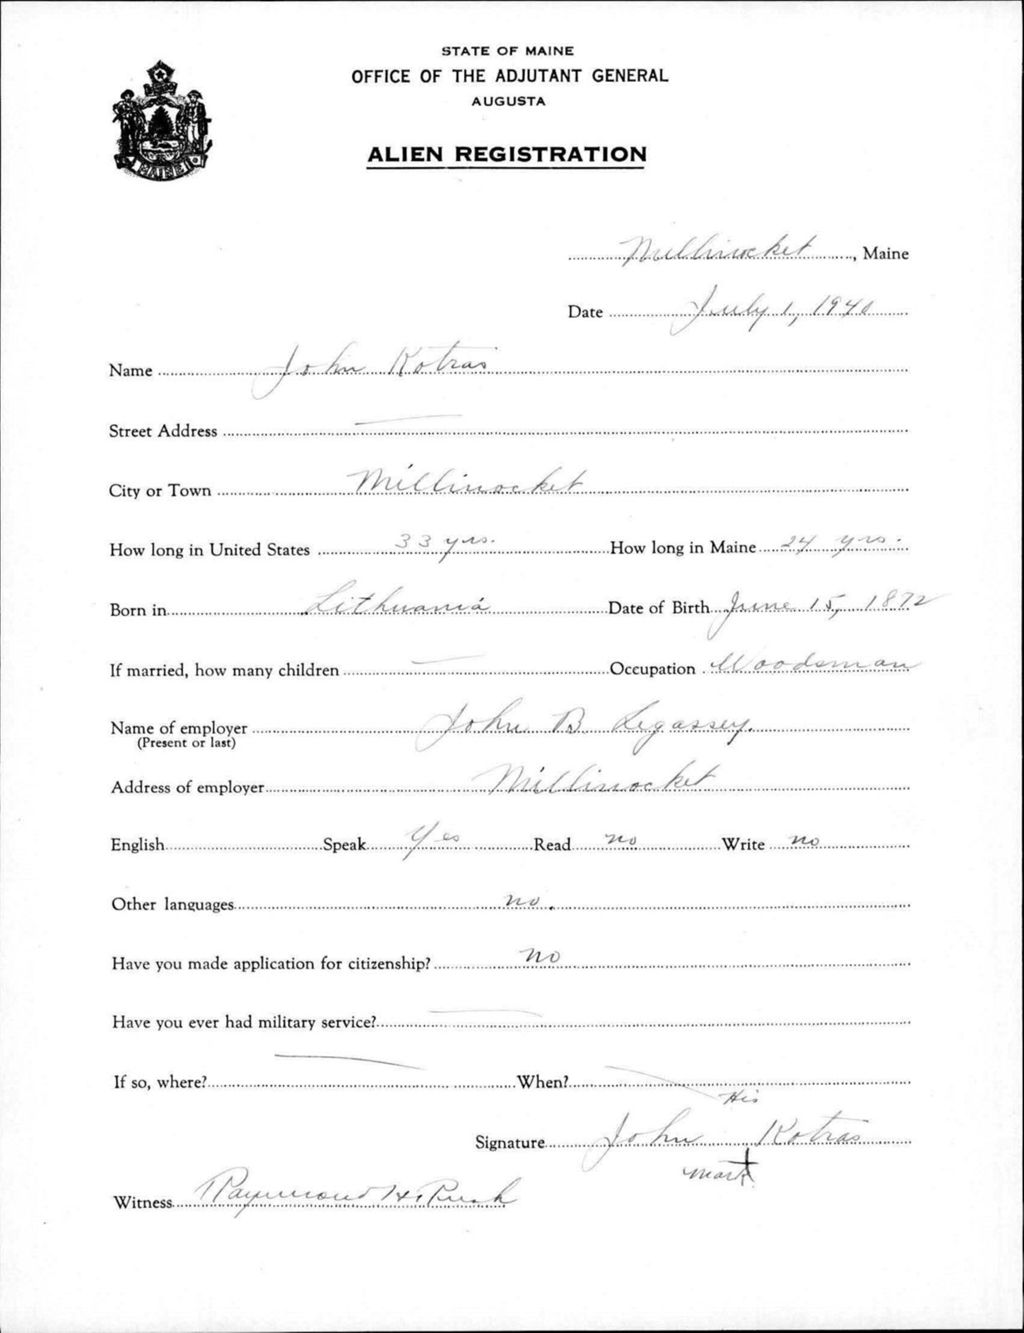 STATE OF MAINE
OFFICE OF THE ADJUTANT GENERAL
AUGUSTA
ALIEN REGISTRATION
MAINE
Millinocket, Maine
Date July 1, 1940
Name John Kotras
Street Address —
City or Town Millinocket
How long in United States 33 yrs. How long in Maine 24 yrs.
Born in Lithuania Date of Birth June 15, 1872
If married, how many children — Occupation Woodsman
Name of employer John B Legassey.
(Present or last)
Address of employer Millinocket
English Speak Yes Read no Write no
Other languages no.
Have you made application for citizenship? no
Have you ever had military service? —
If so, where? — When? —
His
Signature John Kotras
mark
Witness Raymond H. Rush